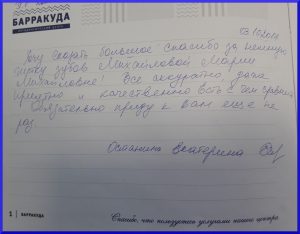 БАРРАКУДА
Хочу сказать большое спасибо за
чистку зубов Михайловой Марии
Михайловне! Все аккуратно, даже
приятно и качественно есть с чем сравн
Обязательно приду к Вам еще не
раз.
Останина Екатерина
1 | БАРРАКУДА
Спасибо, что пользуетесь услугами нашего центра